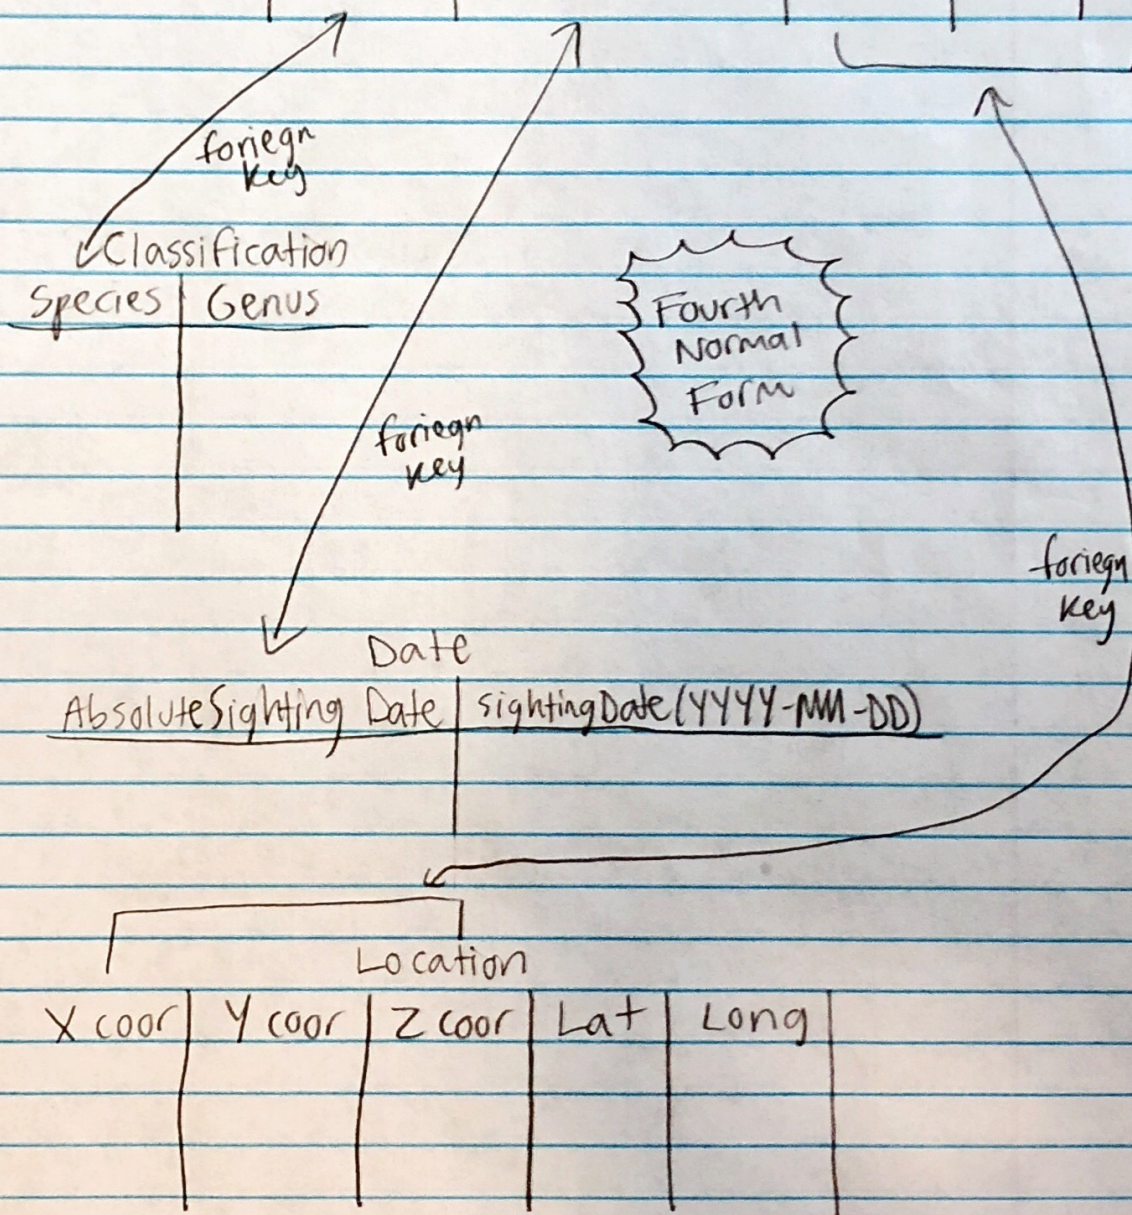 foriegn
key
Classification
Species Genus
Fourth
Normal
Form
foriegn
key
foriegn
key
Date
AbsoluteSighting Date sightingDate(YYYY-MM-DD)
Location
X coor Y coor Z coor Lat Long